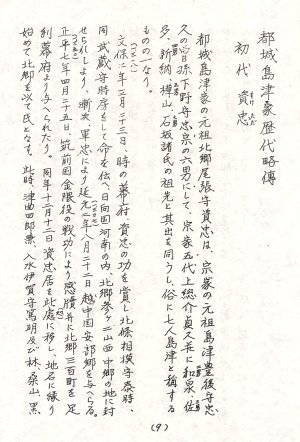 都城島津家歴代略傳
初代 資忠
都城島津家の元祖北郷尾張守資忠は、宗家の元祖島津豊後守忠
久の曾孫下野守忠宗の六男にして、宗家五代上総介貞久並に和泉、佐
多、新納、樺山、石坂諸氏の祖先と其出を同うし、俗に七人島津と稱する
ものの一なり。
文保二年三月二十三日、時の幕府、資忠の功を賞し北條相模守泰時、
同武蔵守時房をして命を伝へ日向国河南の内、北郷参ケ二山西中郷の地に封
せられしより、漸次、軍忠により延元二年八月二十二日越中国安部郷を与へらる。
正平七年四月二十五日、筑前国金隈役の戦功により感牘並に北郷三百町を足
利幕府より与へられたり。同年十二月十二日資忠居を此處に移し、地名に縁り
始めて北郷を以て氏となす。此時、津曲四郎兼、入水伊賀守篤明及び林、桑山、黒
(9)